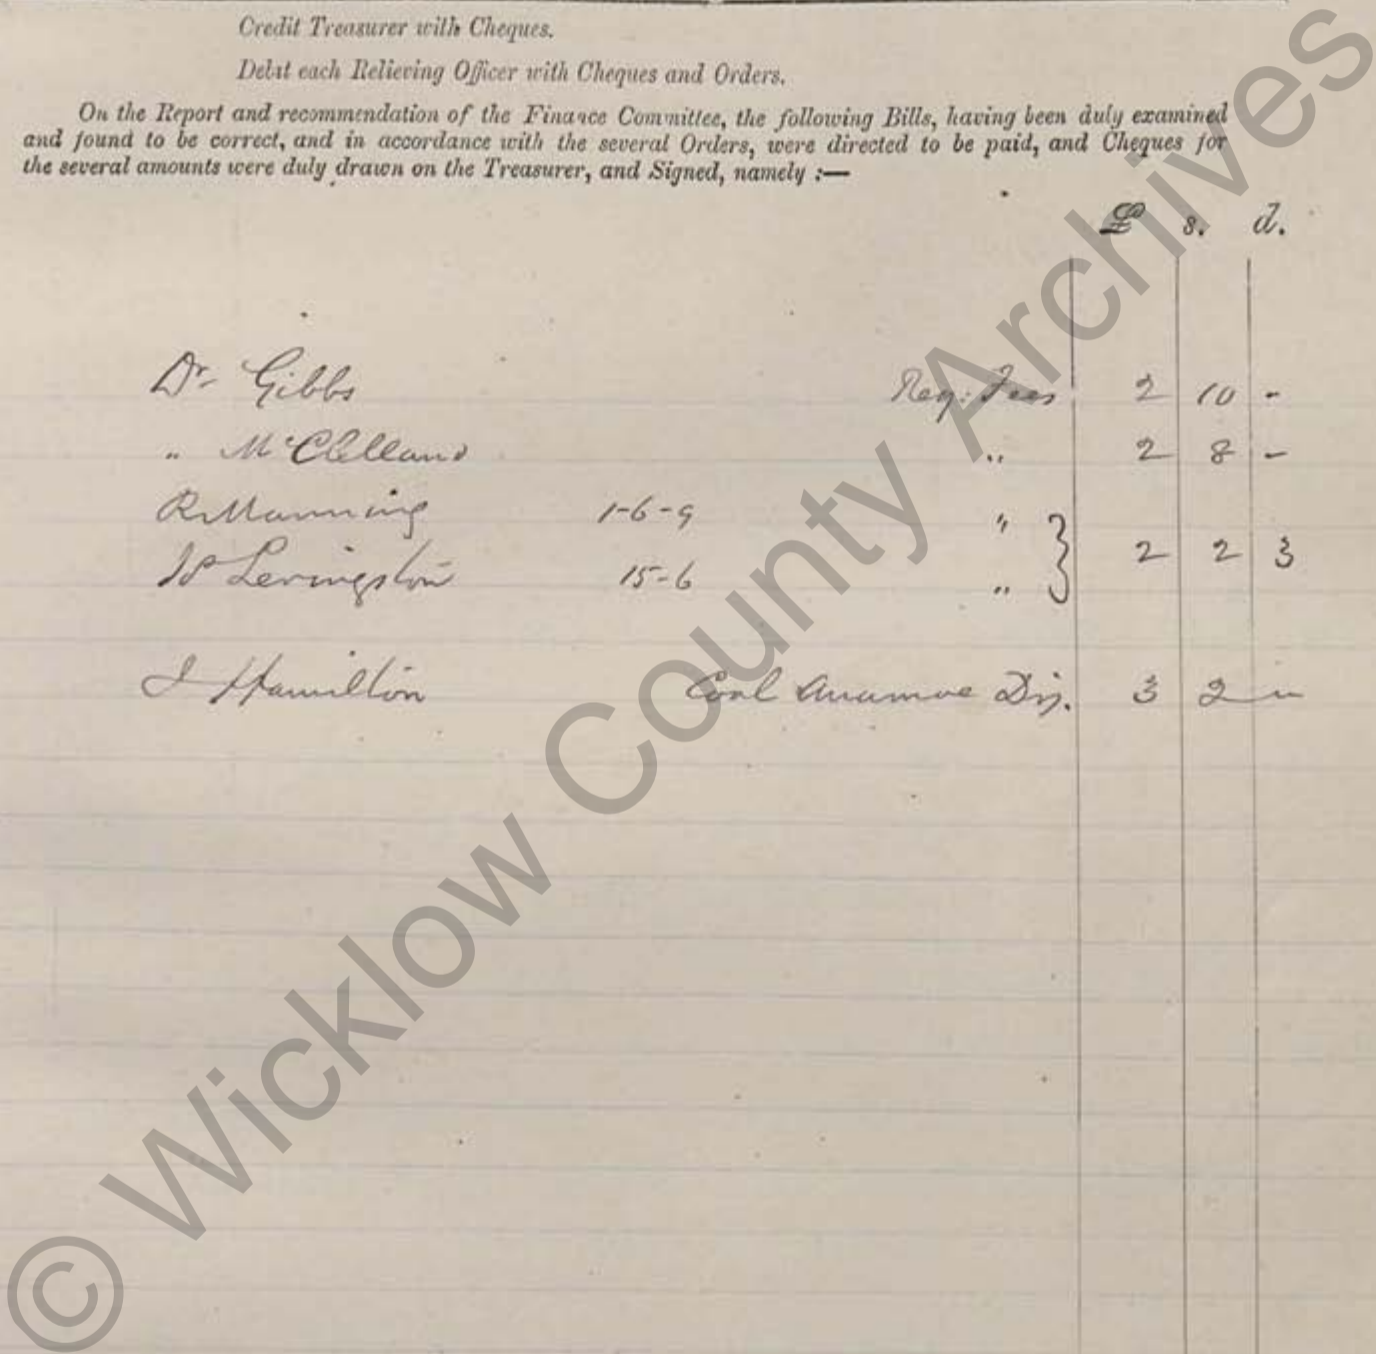 Credit Treasurer with Cheques.
Debit each Relieving Officer with Cheques and Orders.
On the Report and recommendation of the Finance Committee, the following Bills, having been duly examined
and found to be correct, and in accordance with the several Orders, were directed to be paid, and Cheques for
the several amounts were duly drawn on the Treasurer, and Signed, namely :—
£ s. d.
Dr. Gibbs Reg: Fees 2 10 -
" McClelland " 2 8 -
R Manning 1-6-9 "
Levingston 15-6 " } 2 2 3
J Hamilton Coal Anamoe Dis. 3 2 -
© Wicklow County Archives